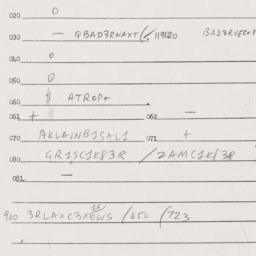 020 0
030 — QBAD3RNAXT(/119620 BAD3RVEC+8
040 0
050 0
060 $ ATROP+
061 + 062 —
070 AKLAJNB1SAL1 071 +
080 GR1SC1K83R /2AMC1K83R
081 —
900 3RLAXC3X6WS /650 /723